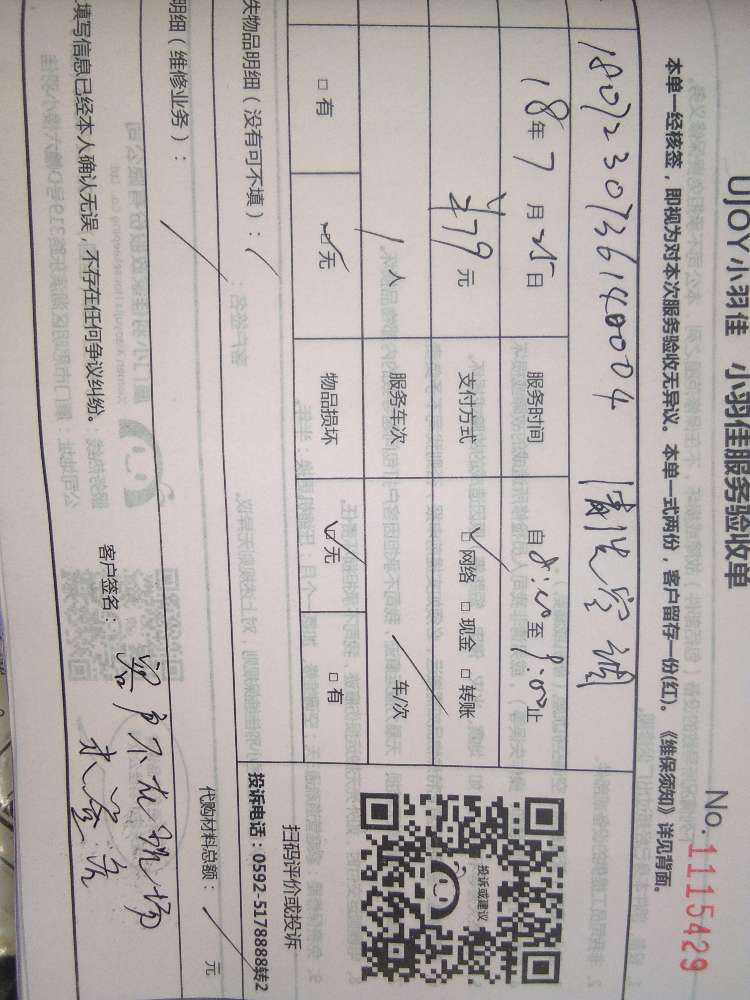 UJOY小羽佳 小羽佳服务验收单
No. 1115429
本单一经核签，即视为对本次服务验收无异议。本单一式两份，客户留存一份(红)。《维保须知》详见背面。
1807230736140004 清洗空调
18年7月25日 服务时间 自8:00至9:00止
¥79元 支付方式 □网络 □现金 □转账
1人 服务车次 车/次
□有 □无 物品损坏 □无 □有
投诉或建议
扫码评价或投诉
投诉电话：0592-5178888转2
失物品明细（没有可不填）：
明细（维修业务）：
代购材料总额： 元
填写信息已经本人确认无误，不存在任何争议纠纷。
客户签名：客户不在现场
未签字